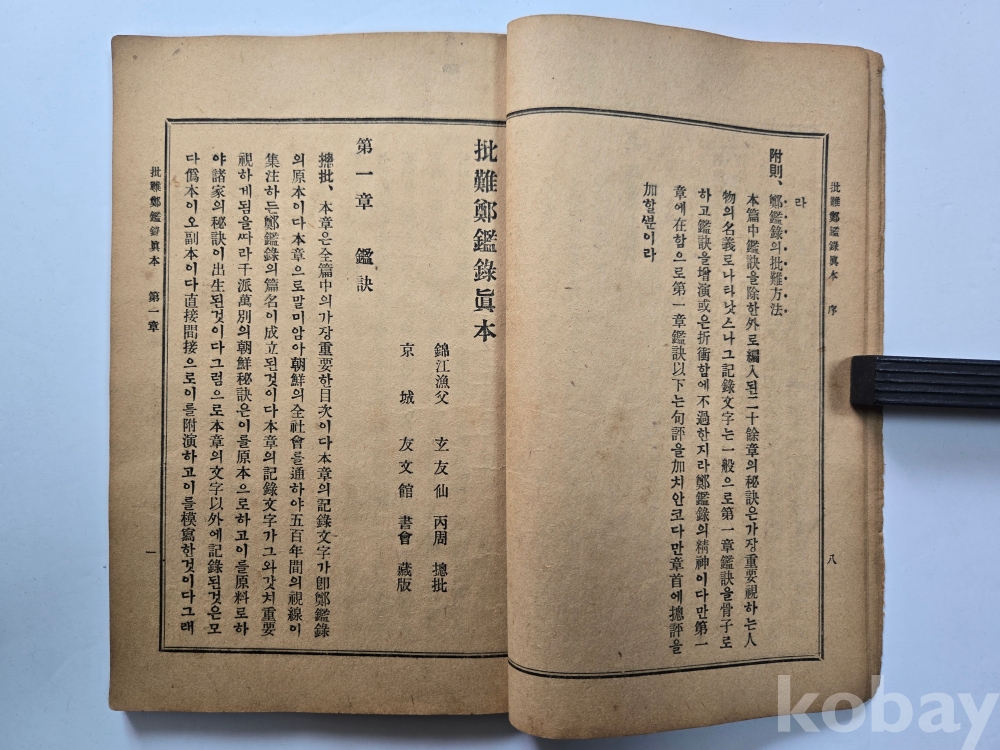 批難鄭鑑錄眞本 序
八
라
附則、鄭鑑錄의批難方法
本篇中鑑訣을除한外로編入된二十餘章의秘訣은가장重要視하는人
物의名義로나타낫스나그記錄文字는一般으로第一章鑑訣을骨子로
하고鑑訣을增演或은折衝함에不過한지라鄭鑑錄의精神이다만第一
章에在함으로第一章鑑訣以下는句評을加치안코다만章首에摠評을
加할뿐이라
批難鄭鑑錄眞本
錦江漁父 玄友仙 丙周 摠批
京城 友文館 書會 藏版
第一章 鑑訣
摠批、本章은全篇中의가장重要한目次이다本章의記錄文字가卽鄭鑑錄
의原本이다本章으로말미암아朝鮮의全社會를通하야五百年間의視線이
集注하든鄭鑑錄의篇名이成立된것이다本章의記錄文字가그와갓치重要
視하게됨을따라千派萬別의朝鮮秘訣은이를原本으로하고이를原料로하
야諸家의秘訣이出生된것이다그럼으로本章의文字以外에記錄된것은모
다僞本이오副本이다直接間接으로이를附演하고이를模寫한것이다그래
批難鄭鑑錄眞本 第一章
一
kobay